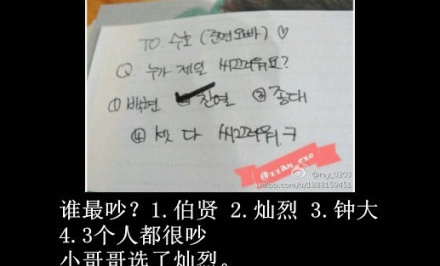 TO. 수호 (준면오빠) ♡
Q. 누가 제일 씨끄러워요?
① 백현 ② 찬열 ③ 종대
④ 셋 다 씨끄러워 ㅋ
@xzan_exo
@ray_0203
weibo.com/u/1883159451
谁最吵？1.伯贤 2.灿烈 3.钟大
4.3个人都很吵
小哥哥选了灿烈。